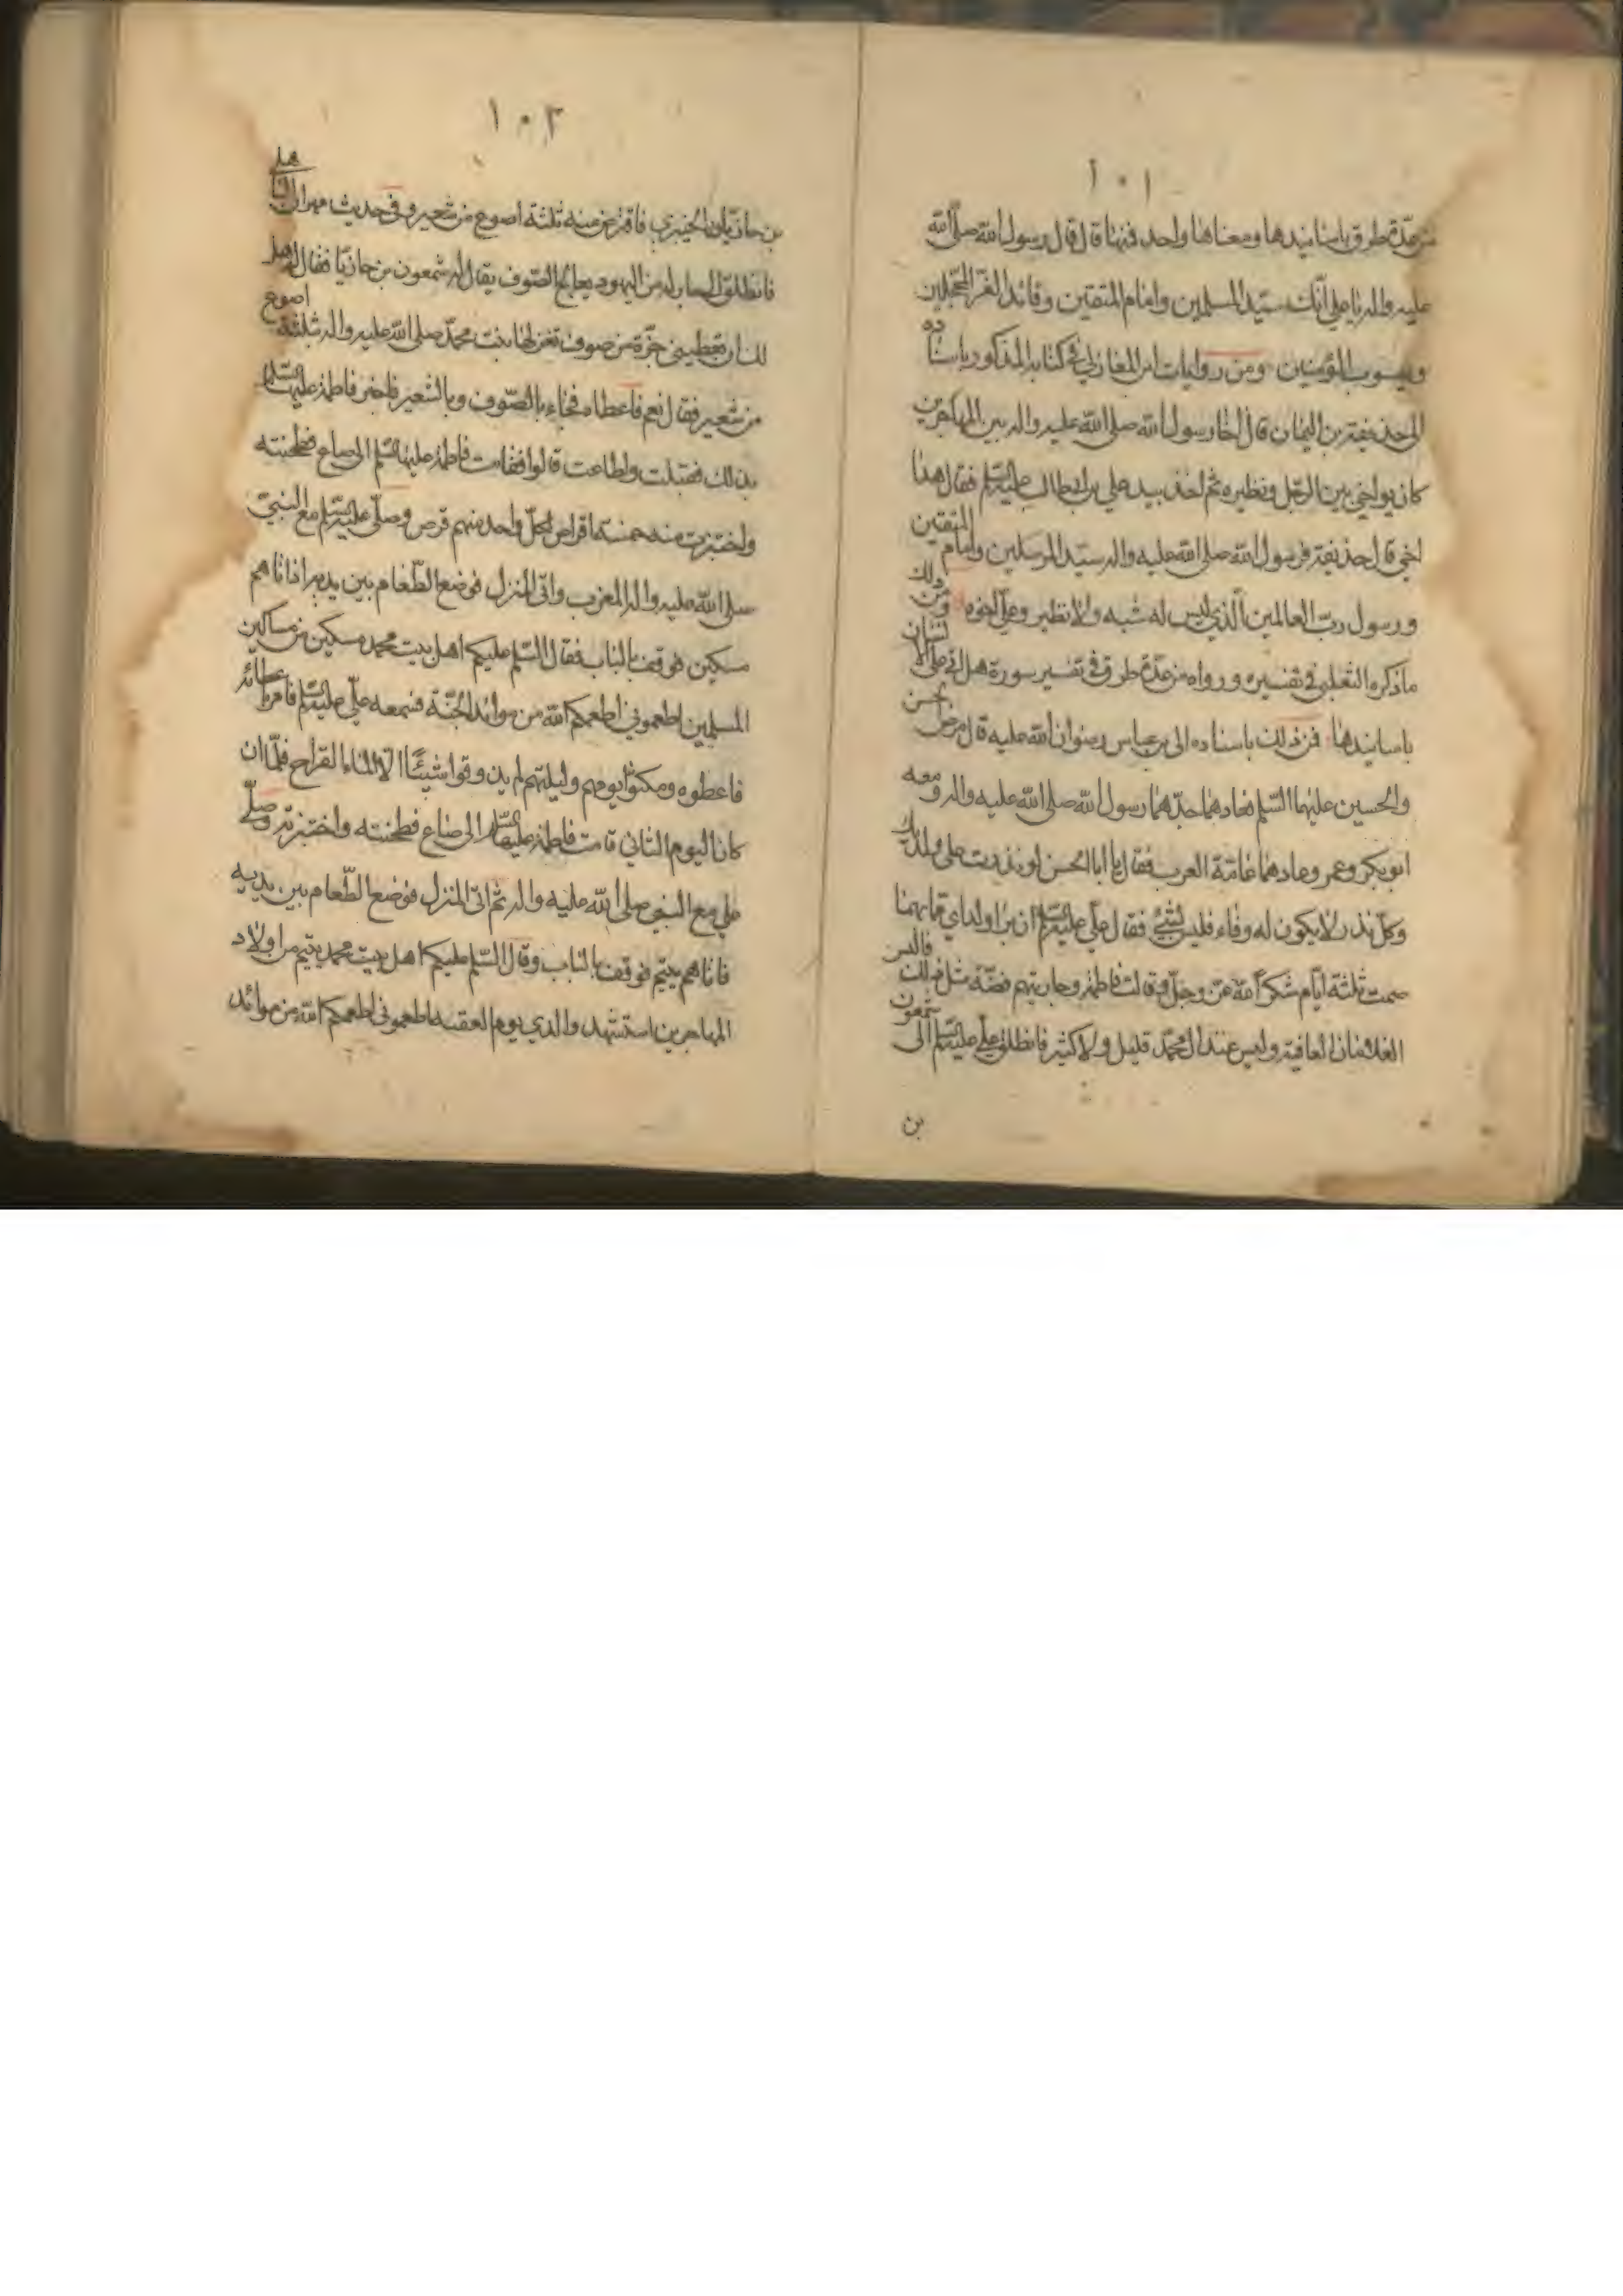 ١٠١
من عدّة طرق باسانيدها ومعناها واحد فمنها قال قال رسول الله صلّى الله
عليه واله يا علي انّك سيّد المسلمين وامام المتقين وقائد الغرّ المحجّلين
ويعسوب المؤمنين ومن روايات ابن المغازلي في كتابه المذكور باسناده
الى حذيفة بن اليمان قال اخا رسول الله صلى الله عليه واله بين المهاجرين
كان يواخي بين الرجل ونظيره ثم اخذ بيد علي بن ابي طالب عليه السلم فقال هذا
اخي قال حذيفة فرسول الله صلى الله عليه واله سيّد المرسلين وامام المتقين
ورسول ربّ العالمين الّذي ليس له شبه ولا نظير وعلي اخوه ومن ذلك
ما ذكره الثعلبي في تفسيره ورواه من عدّة طرق في تفسير سورة هل اتى على الانسان
باسانيدها فمن ذلك باسناده الى بن عباس رضوان الله عليه قال مرض الحسن
والحسين عليهما السّلم فعادهما جدّهما رسول الله صلى الله عليه واله ومعه
ابو بكر وعمر وعادهما عامّة العرب فقال يا ابا الحسن لو نذرت على ولديك
وكلّ نذر لا يكون له وفاء فليس بشيئ فقال علي عليه السلم ان برا ولداي مما بهما
صمت ثلثة ايّام شكراً لله عزّ وجلّ وقالت فاطمة وجاريتهم فضّة مثل ذلك فالبس
الغلامان العافية وليس عند ال محمّد قليل ولا كثير فانطلق علي عليه السلم الى شمعون
بن
١٠٢
بن حانيّا الخيبري فاقترض منه ثلثة اصوع من شعير وفي حديث مهران الباهلي
فانطلق الى جار له من اليهود يعالج الصّوف يقال له شمعون بن حانيّا فقال له هل
لك ان تعطيني جزّة من صوف تغزلها بنت محمّد صلى الله عليه واله بثلثة اصوع
من شعير فقال نعم فاعطاه فجاء بالصّوف وبالشعير فاخبر فاطمة عليها السلم
بذلك فقبلت واطاعت قالوا فقامت فاطمة عليها السلم الى صاع فطحنته
واختبزت منه خمسة اقراص لكلّ واحد منهم قرص وصلّى علي عليه السلم مع النبيّ
صلى الله عليه واله المغرب واتى المنزل فوضع الطّعام بين يديه اذ اتاهم
مسكين فوقف بالباب فقال السّلم عليكم اهل بيت محمد مسكين من مساكين
المسلمين اطعموني اطعمكم الله من موائد الجنّة فسمعه علي عليه السلم فامر باعطائه
فاعطوه ومكثوا يومهم وليلتهم لم يذوقوا شيئًا الّا الماء القراح فلمّا ان
كان اليوم الثاني قامت فاطمة عليها السلم الى صاع فطحنته واختبزته وصلّى
علي مع النبي صلى الله عليه واله ثم اتى المنزل فوضع الطّعام بين يديه
فاتاهم يتيم فوقف بالباب وقال السّلم عليكم اهل بيت محمد يتيم من اولاد
المهاجرين استشهد والدي يوم العقبة اطعموني اطعمكم الله من موائد